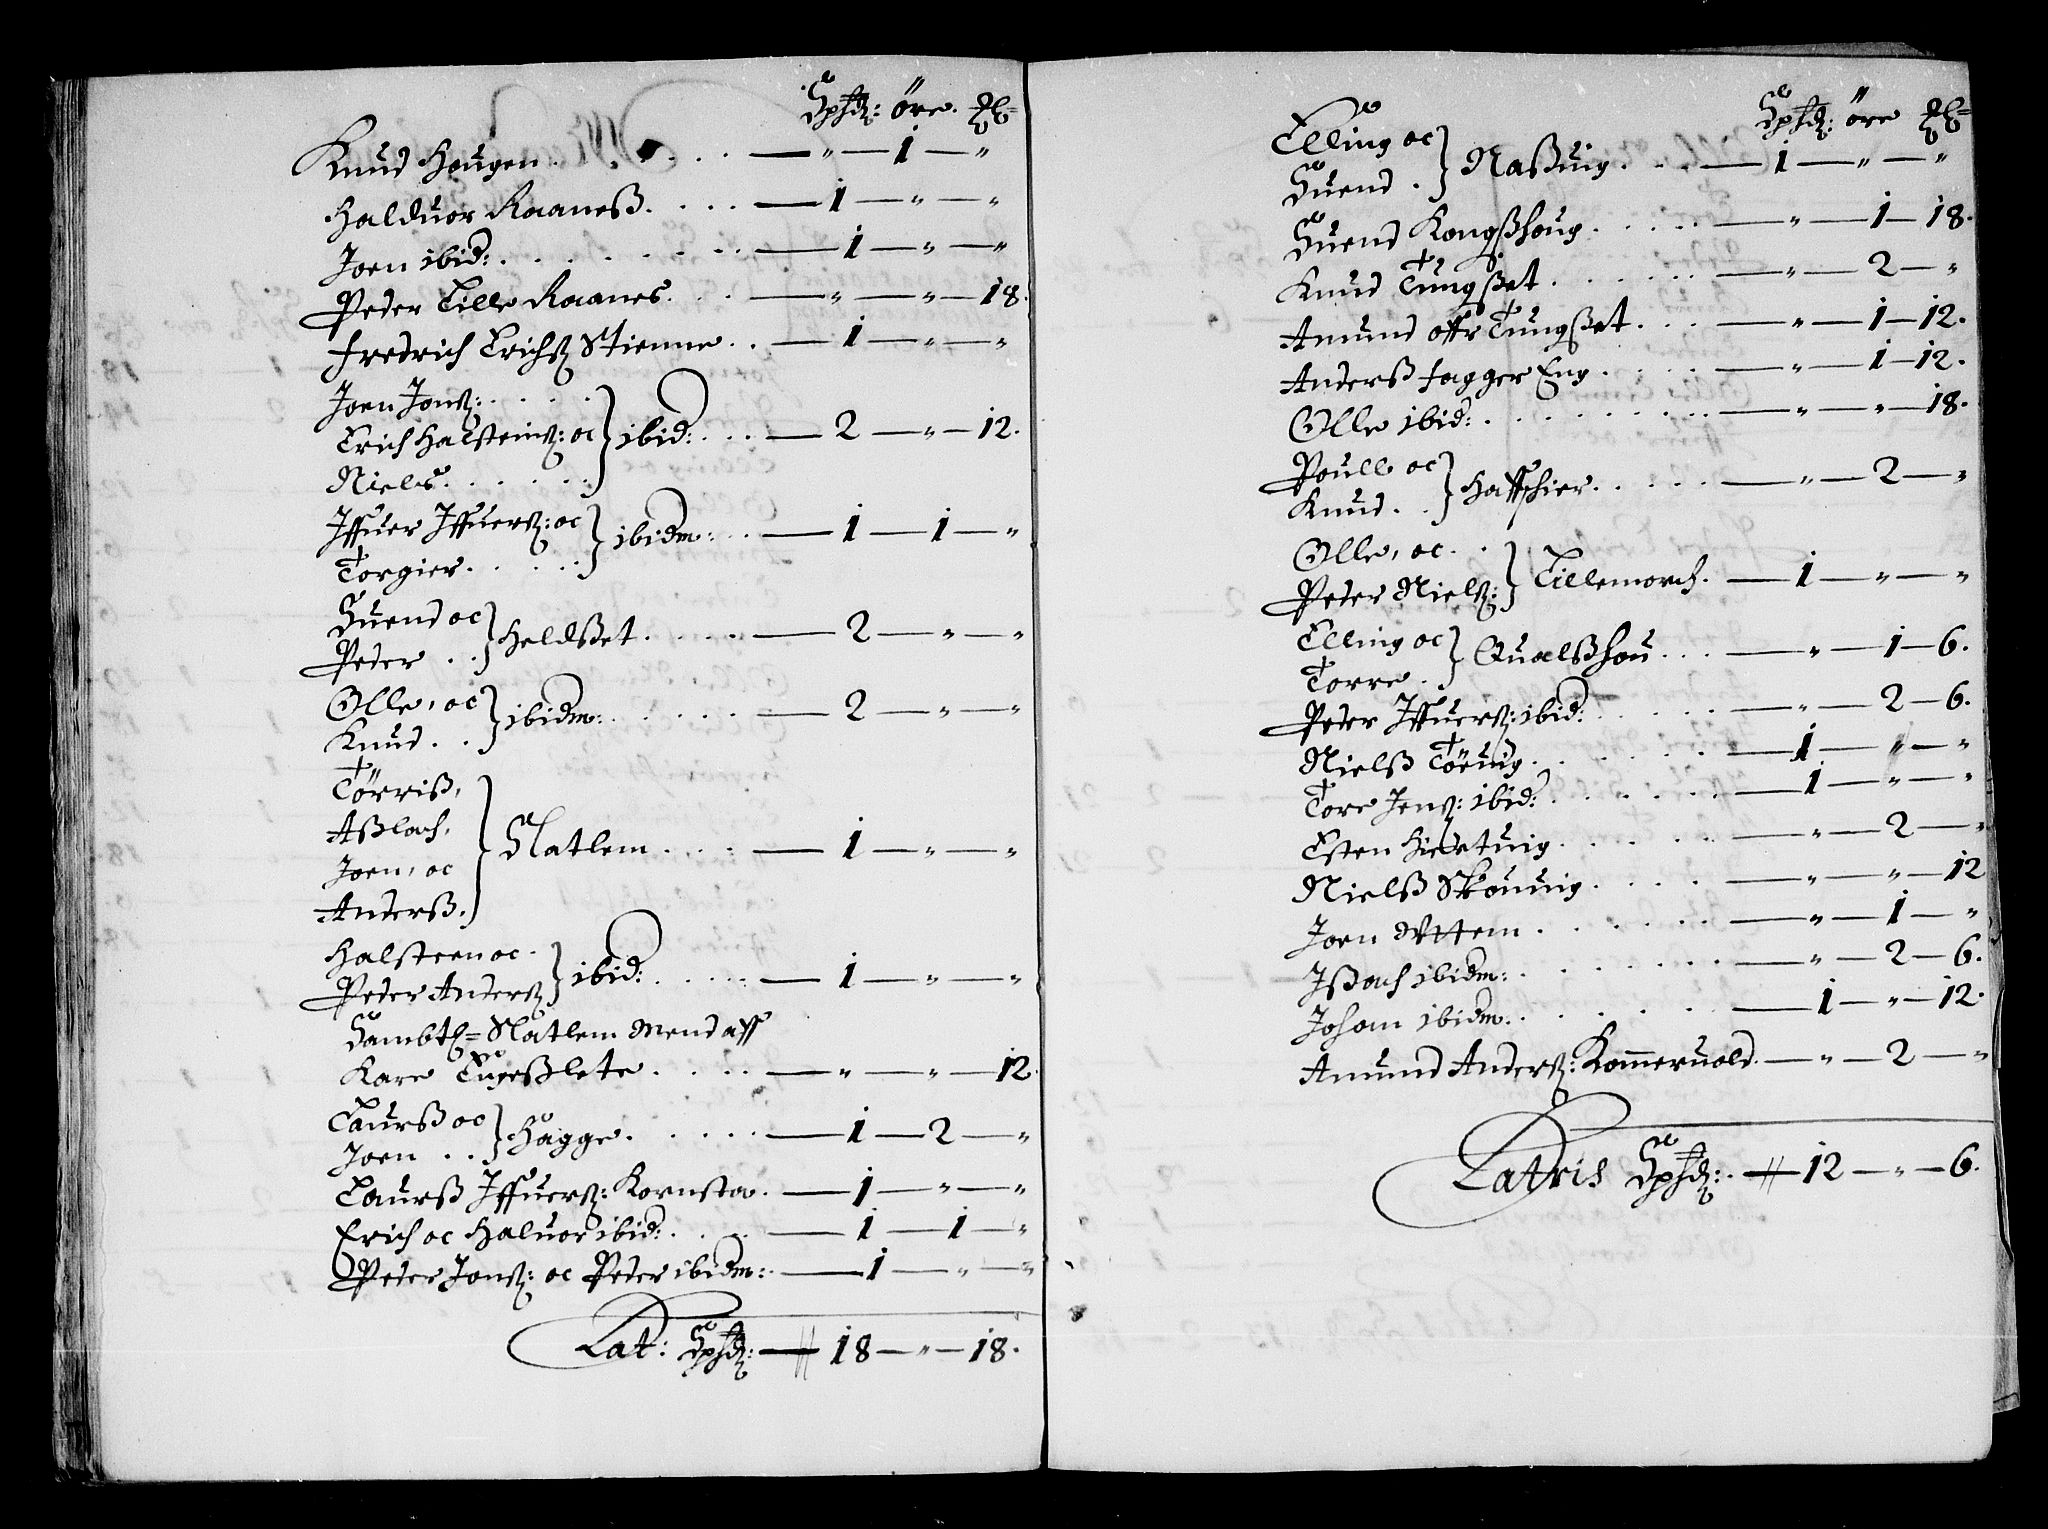 Spsd: öre. ℔
Knud Hougen . . . . — " — 1 — "
Halduor Raaness. . . . — 1 — " — "
Joen ibid: . . . . . . . — 1 — " — "
Peder Lille Raanes. . . — " — " — 18.
Fredrich Erichß Stienne . . — 1 — " — "
Joen Jonß: . . . .
Erich Halsteinß: oc } ibid: . . . — 2 — " — 12.
Niels. . . . . .
Iffuer Iffuerß: oc } ibidm: . . — 1 — 1 — "
Torgier. . . . . .
Suend oc } Heldßet. . . . . — 2 — " — "
Peder . .
Olle, oc } ibidm: . . . . . — 2 — " — "
Knud . .
Törriß,
Aßlach,
Joen, oc } Slatlem . . . . — 1 — " — "
Anderß.
Halsteen oc . } ibid: . . . . . — 1 — " — "
Peder Anderß
Sambtl= Slatlem Mend aff
Kare Tugeßlete . . . . — " — " — 12.
Laurß oc } Hagge. . . . . . — 1 — 2 — "
Joen . .
Laurß Iffuerß: Kornstad. — 1 — " — "
Erich oc Haluor ibid: . . . . — 1 — 1 — "
Peder Jonß: oc Peder ibidm: — 1 — " — "
Lat: Spsd: — 18 — " — 18.
Spsd: öre ℔
Elling oc } Naßuig . . . . — 1 — " — "
Suend .
Suend Kongßhoug . . . . . — " — 1 — 18.
Knud Tungßet . . . . . . — " — 2 — "
Amund offr Tungßet. . . . — " — 1 — 12.
Anderß Fagger Eng . . . . . — " — 1 — 12.
Olle ibid: . . . . . . . — " — " — 18.
Poull oc } Haffshier. . . . . — " — 2 — "
Knud. .
Olle, oc. . } Lillemorch. — 1 — " — "
Peder Nielß:
Elling oc } Qualßhou . . . — " — 1 — 6.
Torre .
Peder Iffuerß: ibid: . . . . . — " — 2 — 6.
Nielß Töruig . . . . . . — 1 — " — "
Tore Jenß: ibid: . . . . . — 1 — " — "
Esten Hiertuig . . . . . — " — 2 — "
Nielß Skouuig . . . . — " — " — 12
Joen Vttem . . . . . . — " — 1 — "
Ißach ibidm: . . . . . — " — 2 — 6.
Johan ibidm: . . . . . — 1 — " — 12.
Amund Anderß: Komeruold. — " — 2 — "
Latris Spsd: . — 12 — " — 6.